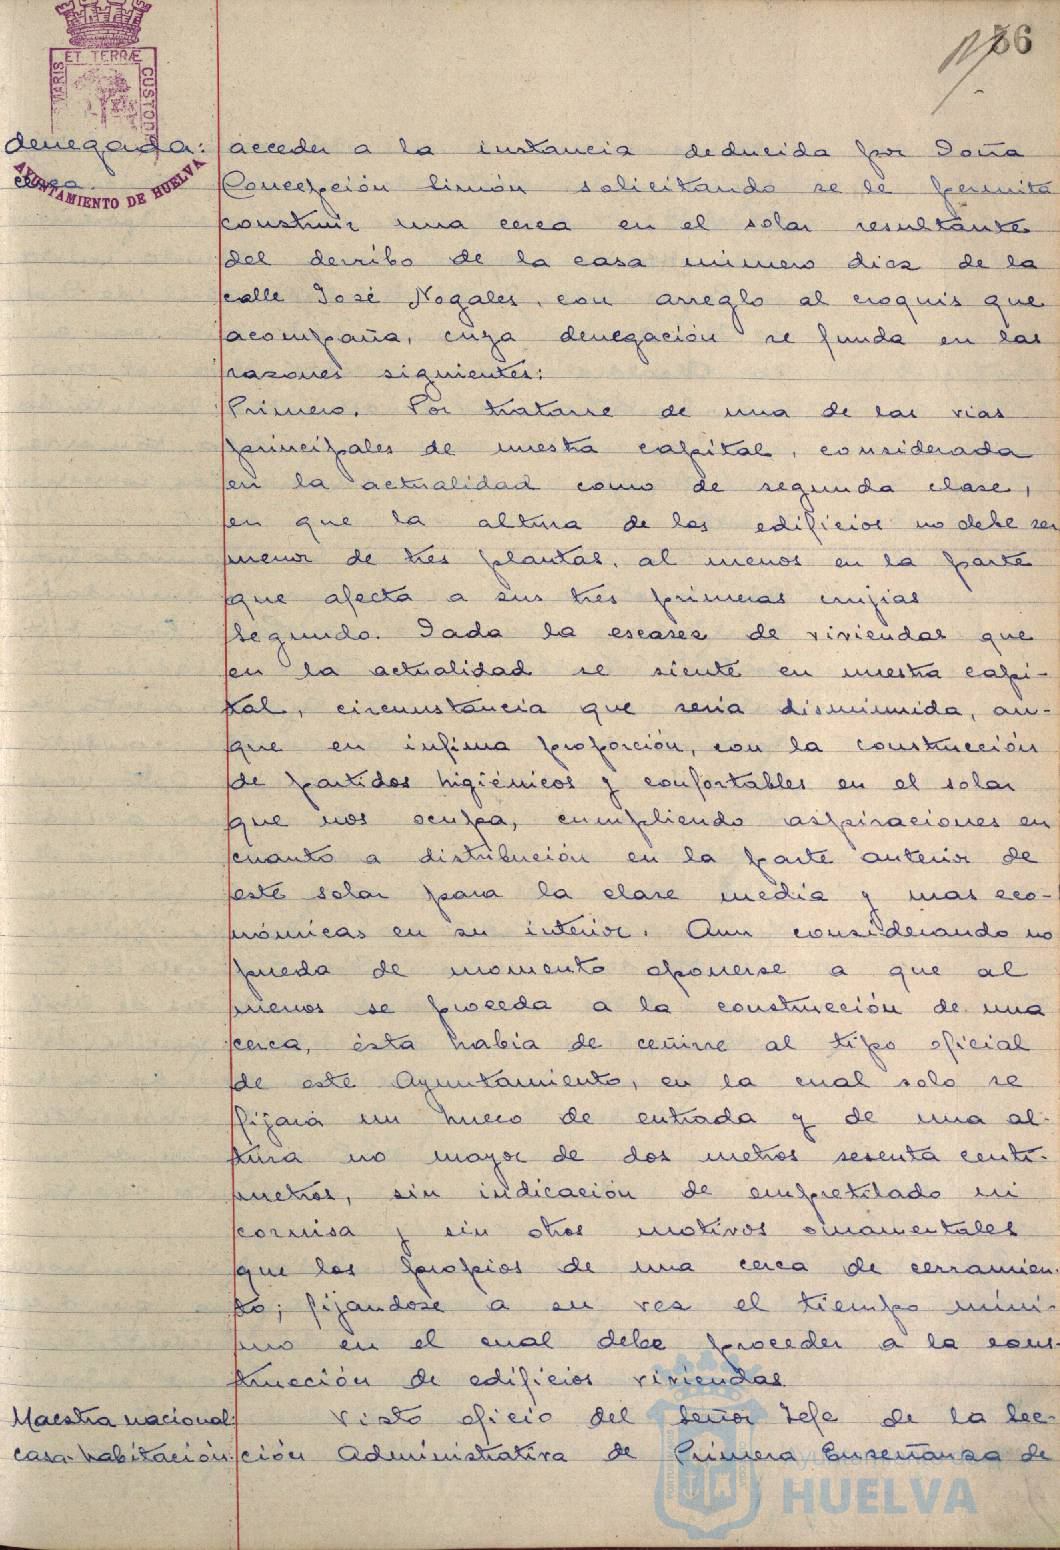 56
MARIS ET TERRÆ CUSTOD
AYUNTAMIENTO DE HUELVA
denegada:
cerca.
acceder a la instancia deducida por Doña
Concepción Limón solicitando se le permita
construir una cerca en el solar resultante
del derribo de la casa número diez de la
calle José Nogales, con arreglo al croquis que
acompaña, cuya denegación se funda en las
razones siguientes:
Primero. Por tratarse de una de las vias
principales de nuestra capital, considerada
en la actualidad como de segunda clase,
en que la altura de los edificios no debe ser
menor de tres plantas, al menos en la parte
que afecta a sus tres primeras crujias
Segundo. Dada la escasez de viviendas que
en la actualidad se siente en nuestra capi-
tal, circunstancia que seria disminuida, aun-
que en infima proporción, con la construcción
de partidos higiénicos y confortables en el solar
que nos ocupa, cumpliendo aspiraciones en
cuanto a distribución en la parte anterior de
este solar para la clase media y mas eco-
nómicas en su interior. Aun considerando no
pueda de momento oponerse a que al
menos se proceda a la construcción de una
cerca, ésta habia de ceñirse al tipo oficial
de este Ayuntamiento, en la cual solo se
fijará un hueco de entrada y de una al-
tura no mayor de dos metros sesenta centi-
metros, sin indicación de empretilado ni
cornisa y sin otros motivos ornamentales
que los propios de una cerca de cerramien-
to; fijandose a su vez el tiempo míni-
mo en el cual debe proceder a la cons-
trucción de edificios viviendas
Maestra nacional:
casa-habitación.
Visto oficio del Señor Jefe de la Sec-
ción Administrativa de Primera Enseñanza de
HUELVA